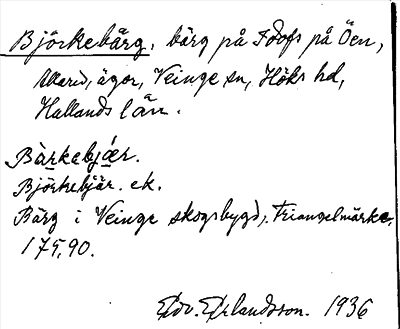 Björkebärg, bärg på Foofs på Öen,
Allarid, ägor, Veinge sn, Höks hd,
Hallands län.
Bàrkebjǽr.
Björkebjär. ek.
Bärg i Veinge skogsbygd. Triangelmärke.
175,90.
Edv. Erlandsson. 1936